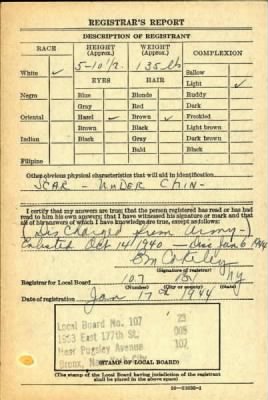 REGISTRAR'S REPORT
DESCRIPTION OF REGISTRANT
RACE HEIGHT (Approx.) WEIGHT (Approx.) COMPLEXION
White ✓ 5-10 1/2 135 lb Sallow
EYES HAIR Light ✓
Negro Blue Blonde Ruddy
Gray Red Dark
Oriental Hazel ✓ Brown ✓ Freckled
Brown Black Light brown
Indian Black Gray Dark brown
Bald Black
Filipino
Other obvious physical characteristics that will aid in identification
SCAR - UNDER CHIN -
I certify that my answers are true; that the person registered has read or has had read to him his own answers; that I have witnessed his signature or mark and that all of his answers of which I have knowledge are true, except as follows:
(Discharged from Army-)
Enlisted Oct 14/1940 — Diss Jan 6 1944
(Signature of registrar)
Registrar for Local Board 107 NY
(Number) (City or county)
Date of registration Jan 17th 1944
Local Board No. 107 23
1953 East 177th St. 005
Near Pugsley Avenue 107
Bronx, New York City
(STAMP OF LOCAL BOARD)
(The stamp of the Local Board having jurisdiction of the registrant shall be placed in the above space)